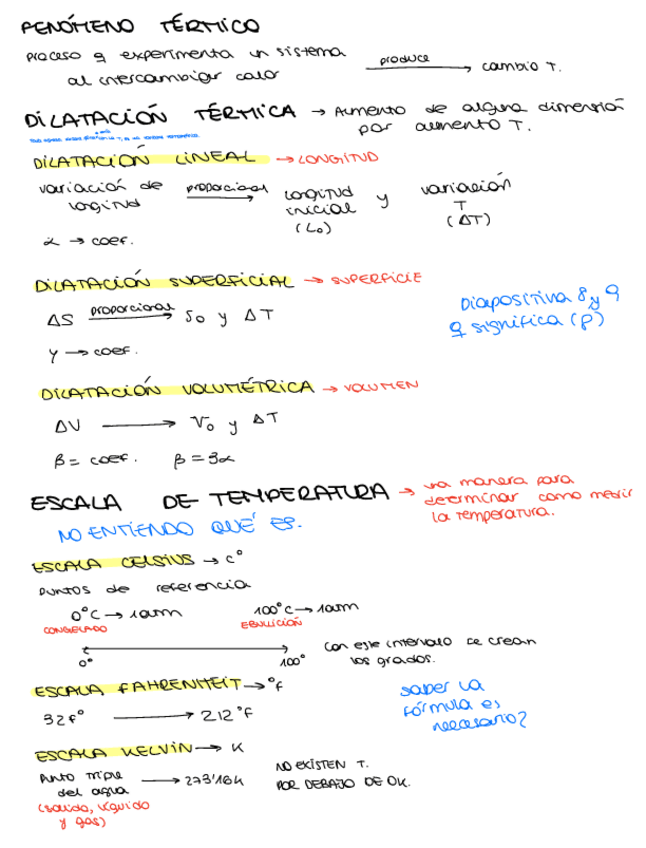 FENÓMENO TÉRMICO
Proceso q experimenta un sistema
al intercambiar calor
produce
cambio T.
DILATACIÓN TÉRMICA → Aumento de alguna dimensión
por aumento T.
DILATACIÓN LINEAL → LONGITUD
variación de
longitud
proporcional
longitud
inicial
(L₀)
y
variación
T
(ΔT)
α → coef.
DILATACIÓN SUPERFICIAL → SUPERFICIE
ΔS proporcional S₀ y ΔT
γ → coef.
Diapositiva 8 y 9
q significa (ρ)
DILATACIÓN VOLUMÉTRICA → VOLUMEN
ΔV → V₀ y ΔT
β = coef. β = 3α
ESCALA DE TEMPERATURA → una manera para
determinar como medir
la temperatura.
NO ENTIENDO QUÉ ES.
ESCALA CELSIUS → Cº
puntos de referencia
0ºC → 1atm
CONGELADO
100ºC → 1atm
EBULLICIÓN
0º
100º
con este intervalo se crean
los grados.
ESCALA FAHRENHEIT → ºF
32Fº → 212ºF
saber la
fórmula es
necesario?
ESCALA KELVIN → K
Punto triple
del agua → 273'16K
(solido, líquido
y gas)
NO EXISTEN T.
POR DEBAJO DE 0K.